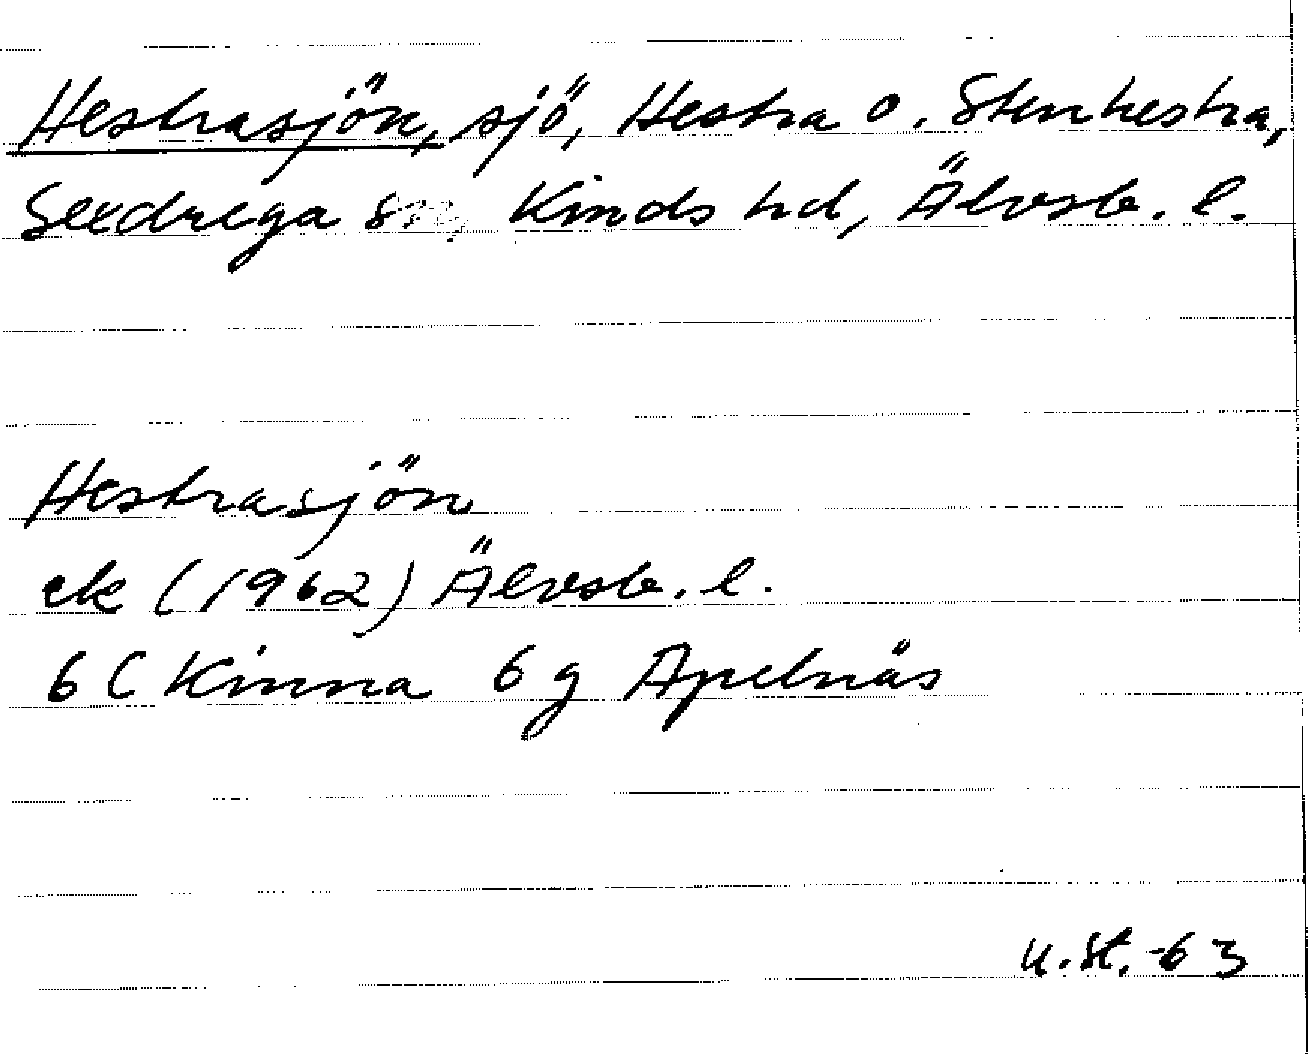 Hestrasjön, sjö, Hestra o. Stenhestra,
Sexdrega sn, Kinds hd, Älvsb. l.
Hestrasjön
ek (1962) Älvsb. l.
6 C Kinna 6 g Apelnäs
U. St. -63